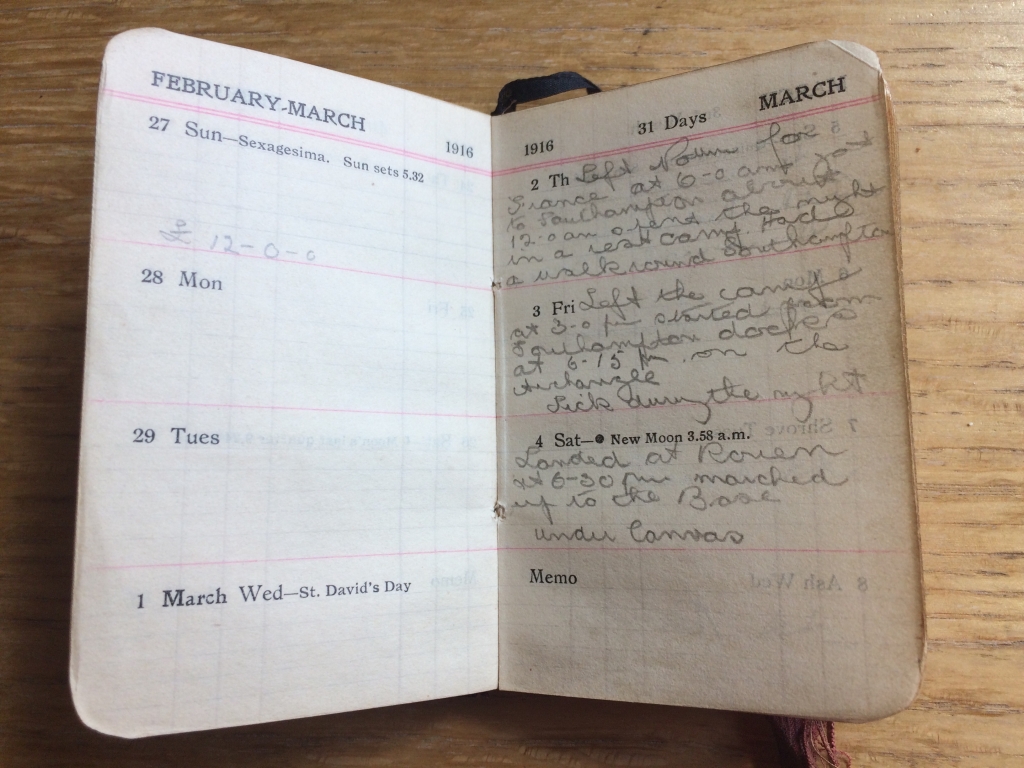 FEBRUARY-MARCH
27 Sun—Sexagesima. Sun sets 5.32
1916
£ 12-0-0
28 Mon
29 Tues
1 March Wed—St. David's Day
MARCH
1916 31 Days
2 Th Left for
France at 6-0 am got
to Southampton about
12.0 am spend the night
in a rest camp. Had
a walk round Southampton
3 Fri Left the camp
at 3-0 pm started from
Southampton docks
at 6-15 pm on the
Archangle
Sick during the night
4 Sat—New Moon 3.58 a.m.
Landed at Rouen
at 6-30 pm marched
up to the Base
under Canvas
Memo